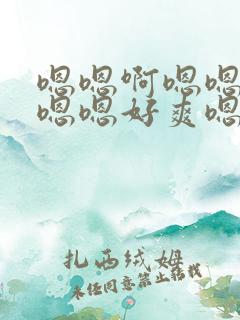 嗯嗯啊嗯嗯
嗯嗯好爽嗯
扎西绒姆
未经同意禁止转载